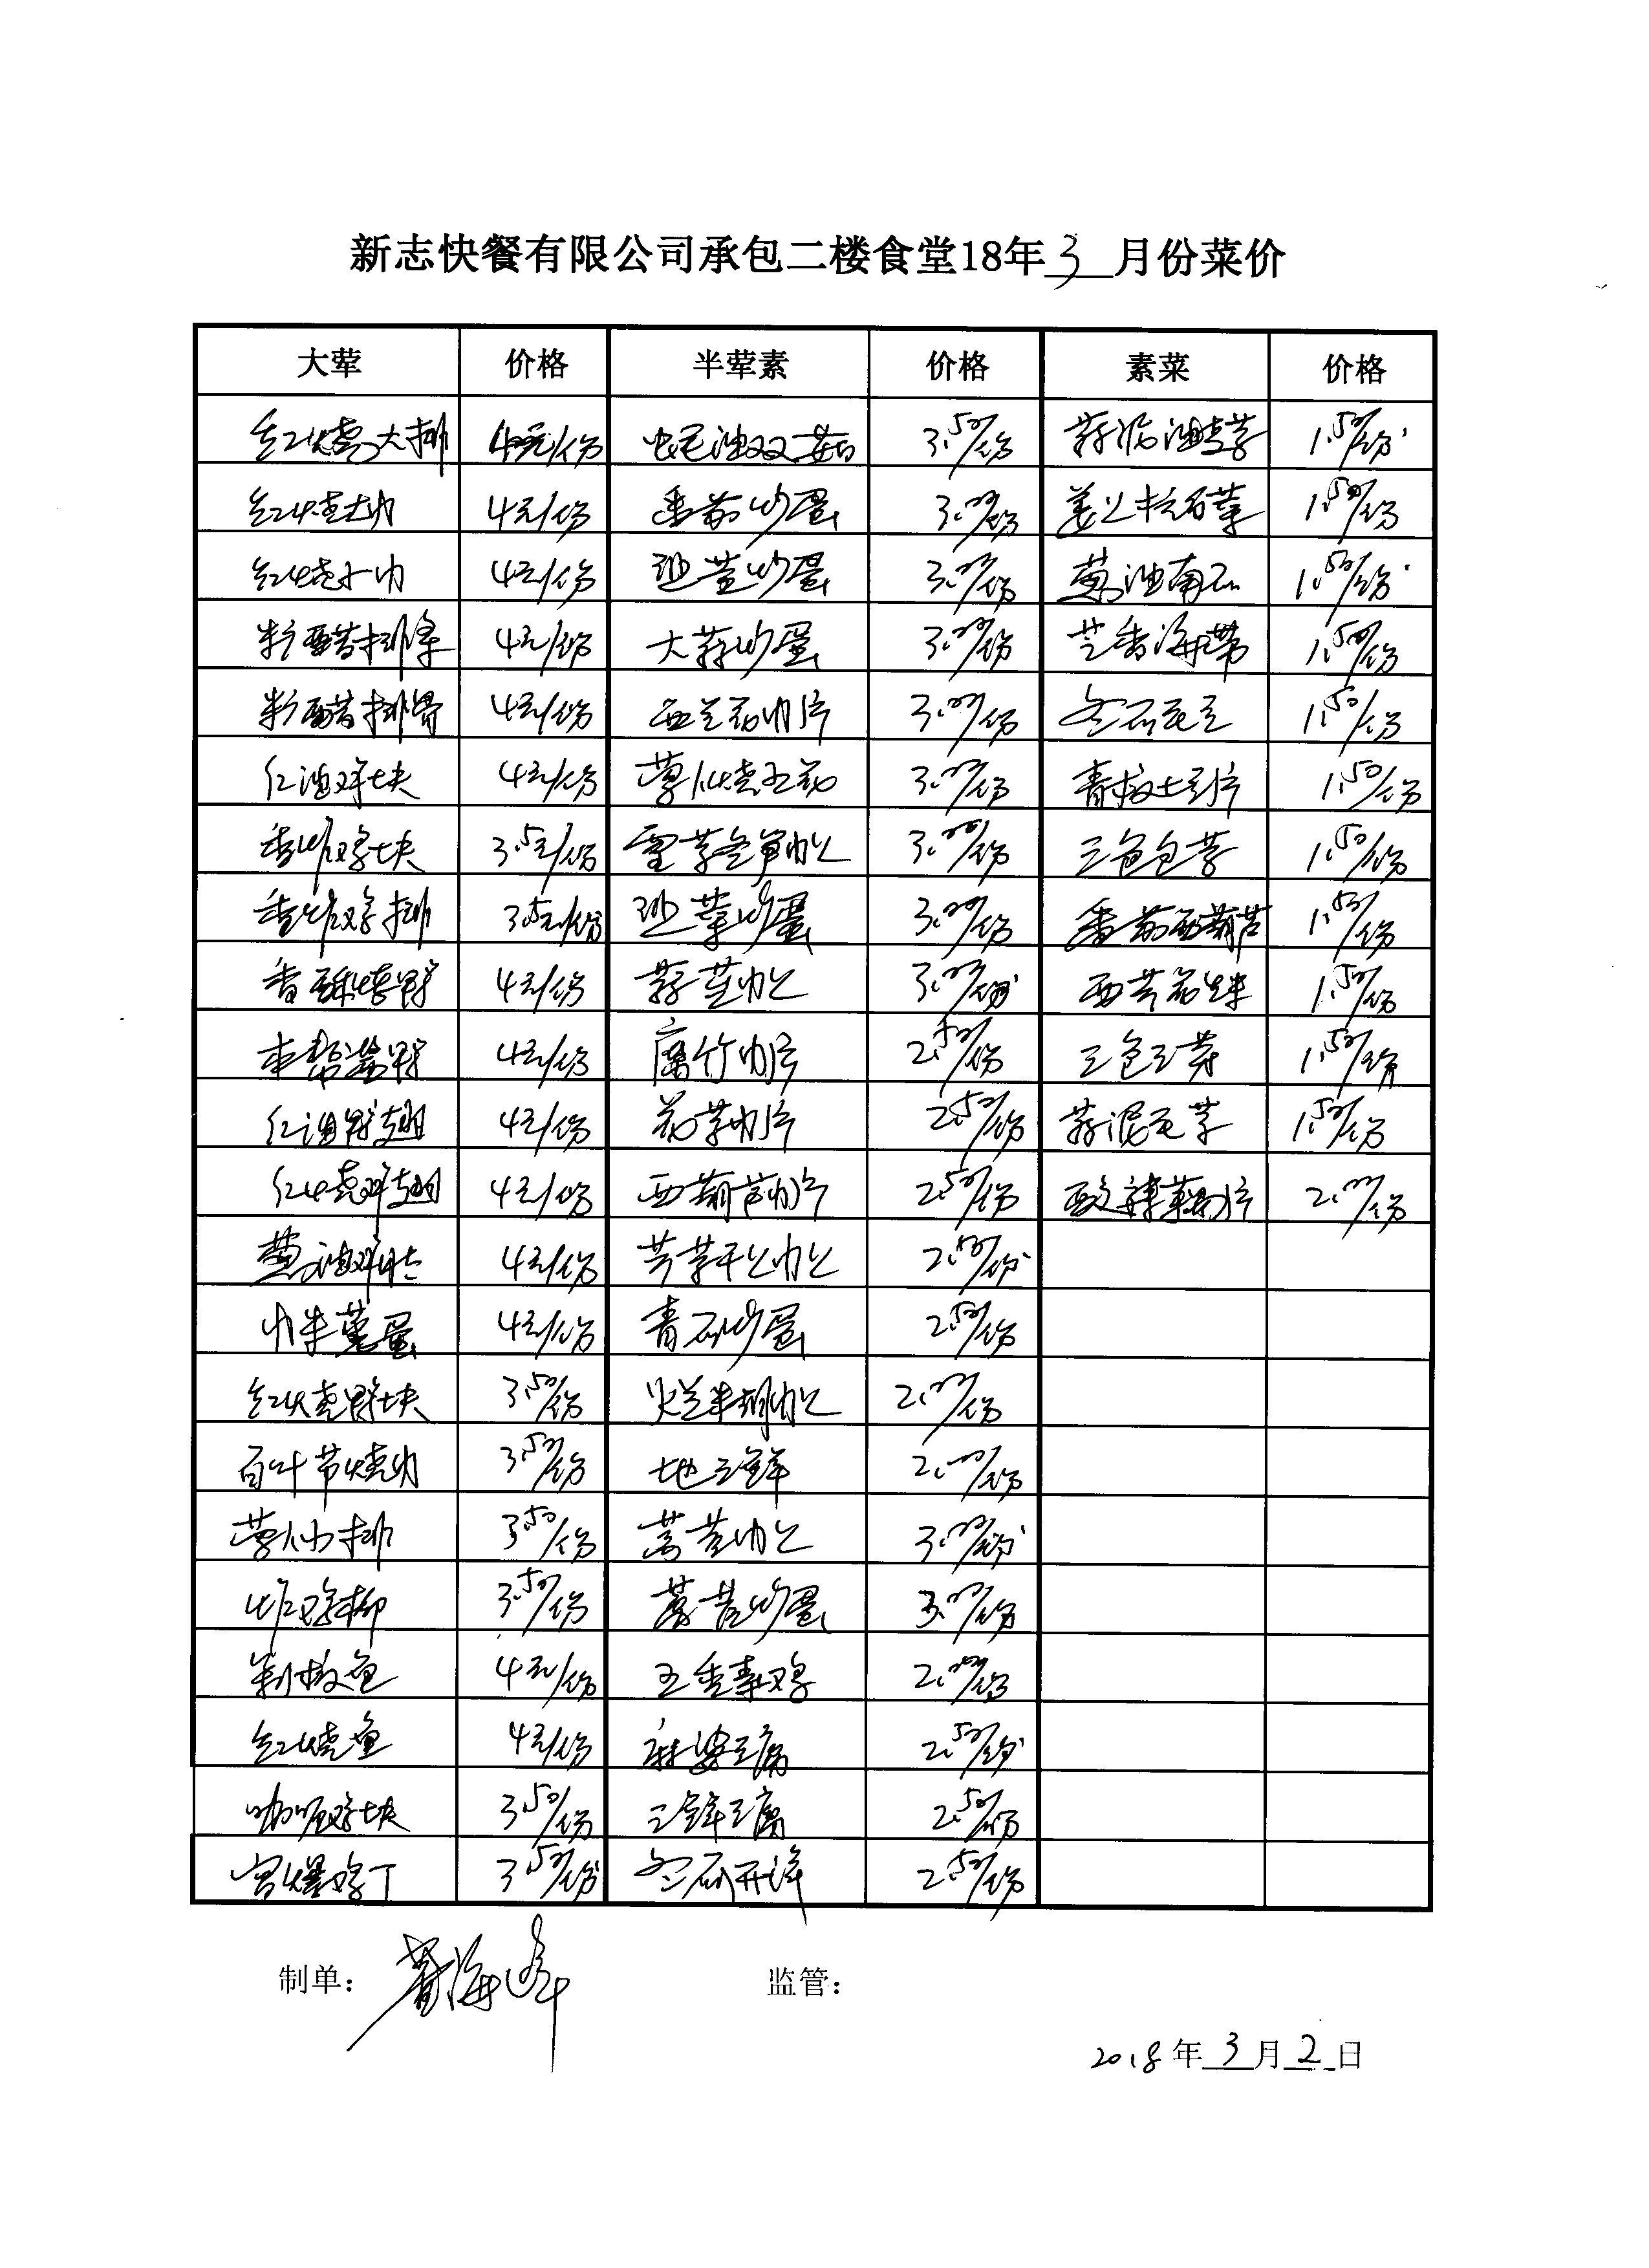 新志快餐有限公司承包二楼食堂18年 3 月份菜价
大荤 价格 半荤素 价格 素菜 价格
红烧大排 4元/份 蚝油双菇 3.50/份 蒜泥油麦菜 1.50/份
红烧大肉 4元/份 番茄炒蛋 3.00/份 姜丝拌苋菜 1.50/份
红烧小肉 4元/份 韭黄炒蛋 3.00/份 葱油南瓜 1.50/份
糖醋排条 4元/份 大蒜炒蛋 3.00/份 芝香海带 1.50/份
糖醋排骨 4元/份 西兰花肉片 3.00/份 冬瓜毛豆 1.50/份
红油鸡块 4元/份 萝卜烧五花 3.00/份 青椒土豆片 1.50/份
香炸鸡块 3.5元/份 雪菜冬笋肉丝 3.00/份 三色包菜 1.50/份
香炸鸡排 3.5元/份 韭菜炒蛋 3.00/份 番茄西葫芦 1.50/份
香酥烤鸭 4元/份 蒜苗肉丝 3.00/份 西芹花生米 1.50/份
本帮酱鸭 4元/份 腐竹肉片 2.50/份 三色豆芽 1.50/份
红油鸡翅 4元/份 花菜肉片 2.50/份 蒜泥毛菜 1.50/份
红烧鸡翅 4元/份 西葫芦肉片 2.50/份 酸辣藕片 2.00/份
葱油鸡腿 4元/份 芹菜干丝肉丝 2.50/份
肉米蒸蛋 4元/份 青瓜炒蛋 2.50/份
红烧鸭块 3.50/份 肉丝 2.00/份
百叶节烧肉 3.50/份 地三鲜 2.00/份
萝卜小排 3.50/份 莴苣肉丝 3.00/份
炸鸡柳 3.50/份 莴苣炒蛋 3.00/份
剁椒鱼 4元/份 五香素鸡 2.00/份
红烧鱼 4元/份 麻婆豆腐 2.50/份
咖喱鸡块 3.50/份 三鲜豆腐 2.50/份
宫爆鸡丁 3.50/份 冬瓜开洋 2.50/份
制单： 海峰 监管：
2018 年 3 月 2 日